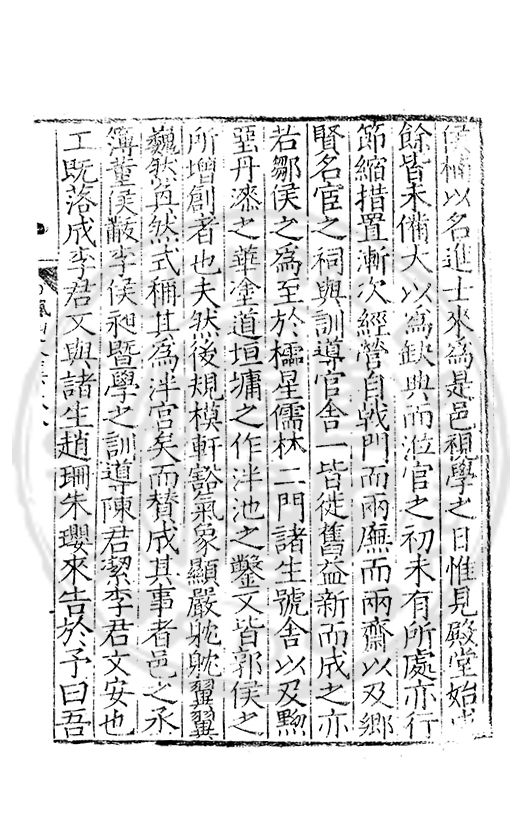 侯楠以名進士來為是邑視學之日惟見殿堂始成
餘皆未備大以為缺典而涖官之初未有所處亦行
節縮措置漸次經營自戟門而兩廡而兩齋以及鄉
賢名宦之祠與訓導官舍一皆徙舊益新而成之亦
若鄒侯之為至於櫺星儒林二門諸生號舍以及黝
堊丹漆之華塗道垣墉之作泮池之鑿又皆郭侯之
所增創者也夫然後規模軒豁氣象顯嚴眈眈翼翼
巍然奐然式稱其為泮宮矣而賛成其事者邑之丞
簿董侯黻李侯昶暨學之訓導陳君潔李君文安也
工既落成李君又與諸生趙珊朱瓔來告於予曰吾